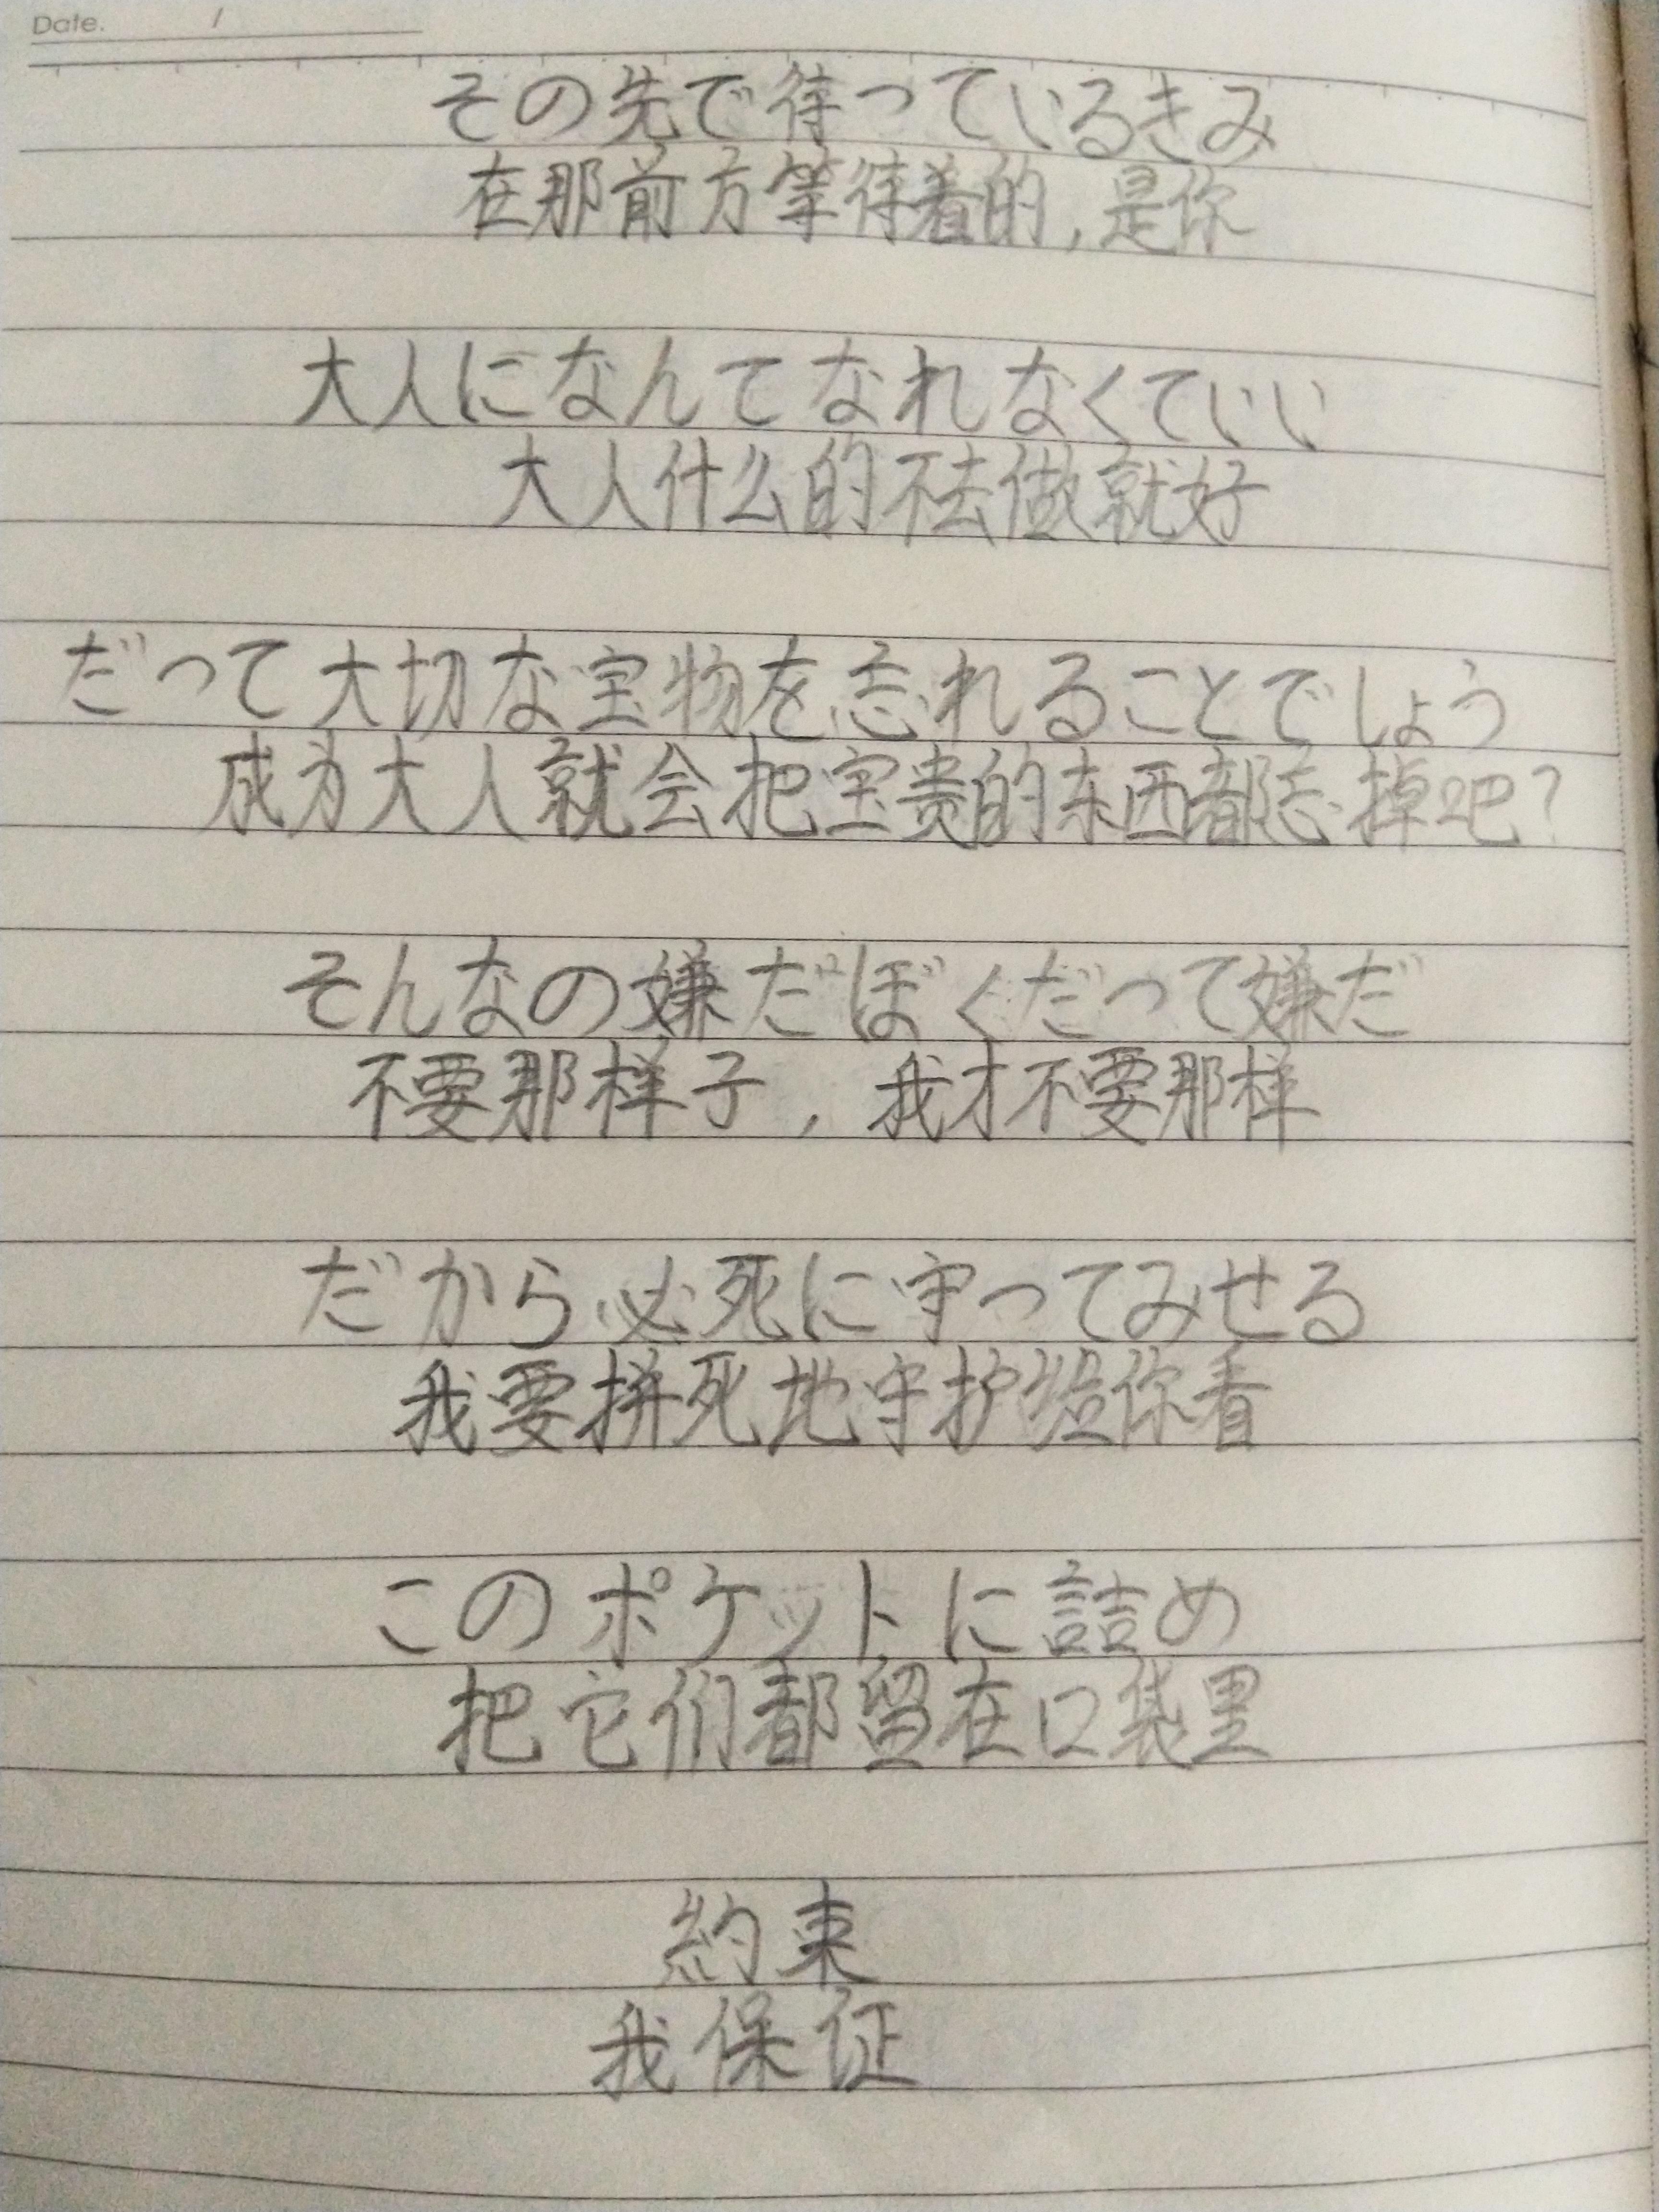 Date. /
その先で待っているきみ
在那前方等待着的,是你
大人になんてなれなくていい
大人什么的不去做就好
だって大切な宝物を忘れることでしょう
成为大人就会把宝贵的东西都忘掉吧?
そんなの嫌だぼくだって嫌だ
不要那样子,我才不要那样
だから必死に守ってみせる
我要拼死地守护给你看
このポケットに詰め
把它们都留在口袋里
約束
我保证